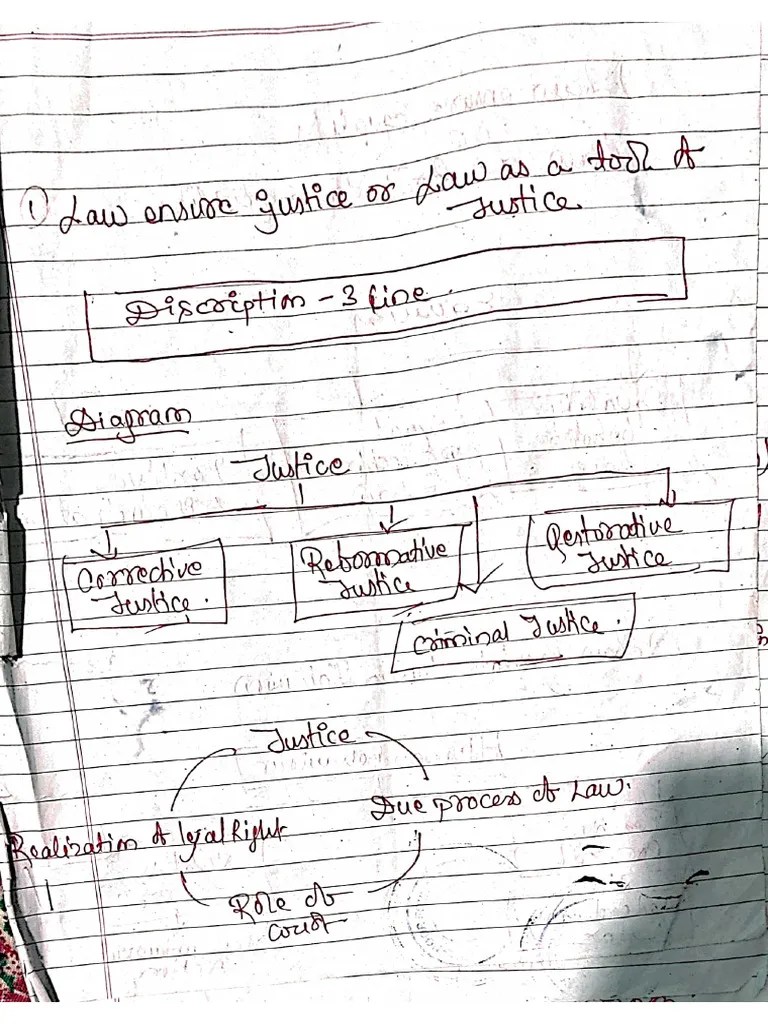 1) Law ensure justice or Law as a tool of
Justice
Discription - 3 line.
Diagram
Justice
Corrective
Justice.
Reformative
Justice
Restorative
Justice
Criminal Justice.
Justice
Due process of Law.
Realization of legal Right
Role of
court